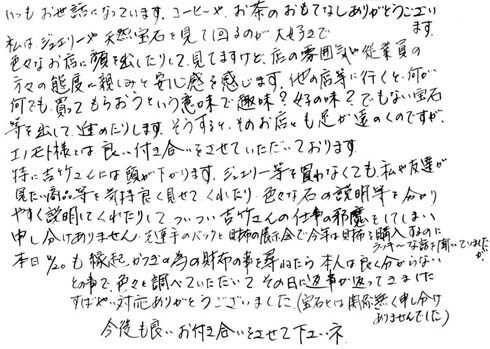 いつもお世話になっています。コーヒーや、お茶のおもてなしありがとうござい
ます。
私はジュエリーや天然宝石を見て回るのが大好きで
色々なお店に顔を出したりして、見てますけど、店の雰囲気や従業員の
方々の態度に親しみと安心感を感じます。他の店等に行くと、何が
何でも、買ってもらおうという意味で趣味?好の味?でもない宝石
等を出して、進めたりします。そうすると、そのお店にも足が遠のくのですが、
エノモト様とは良い付き合いをさせていただいております。
特に吉竹さんには頭が下がります。ジュエリー等を買わなくても、私や友達が
見たい商品等を気持良く見せてくれたり、色々な石の説明等を分かり
やすく説明してくれたりして、ついつい吉竹さんの仕事の邪魔をしてしまい
申し分けありません。先達手のバックと財布の展示会で今年は財布を購入するのに
ラッキーな話を聞いていましたが、
本日1/20も縁起かつぎの為の財布の事を尋ねたら本人は良く分からない
との事で、色々と調べていただいてその日に返事が返ってきました
すばやい対応ありがとうございました。(宝石とは関係無く申し分け
ありませんでした)
今後も良いお付き合いをさせて下さいネ